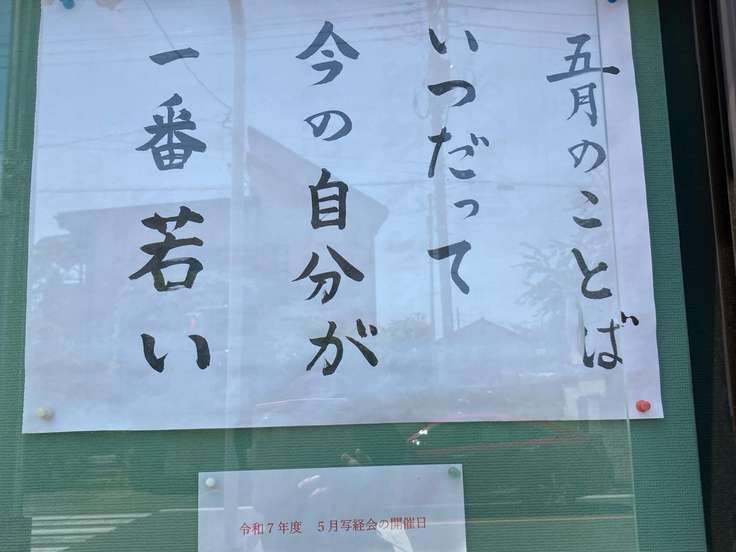 五月のことば
いつだって
今の自分が
一番若い
令和７年度　５月写経会の開催日